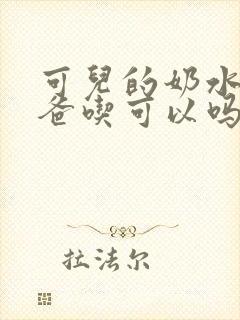 可兒的奶水
爸喫可以吗
拉法尔